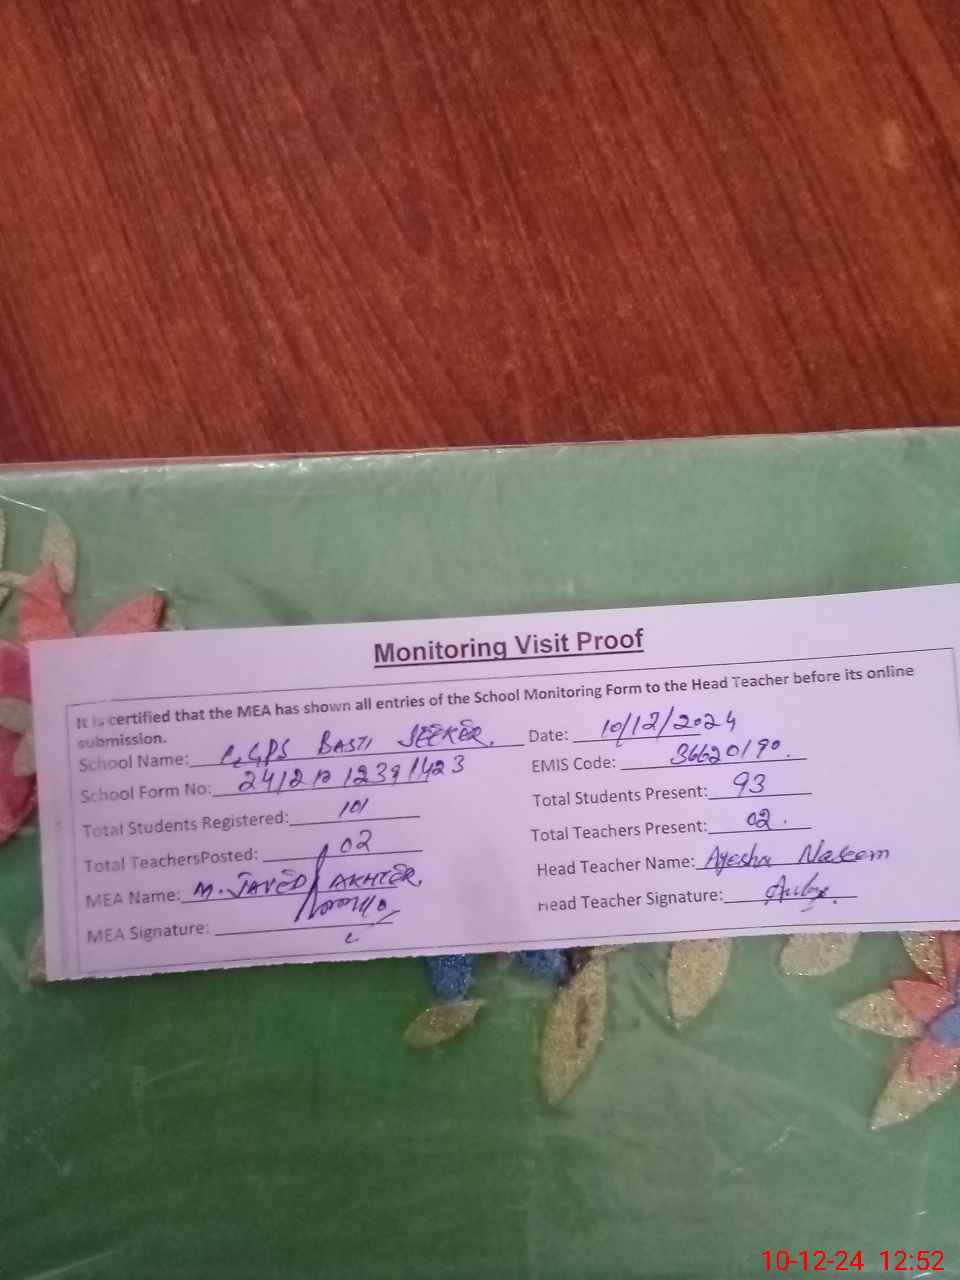 Monitoring Visit Proof
It is certified that the MEA has shown all entries of the School Monitoring Form to the Head Teacher before its online
submission.
School Name: GGPS BASTI SEEKER. Date: 10/12/2024
School Form No: EMIS Code: 36620190.
Total Students Registered: 101 Total Students Present: 93
Total TeachersPosted: 02 Total Teachers Present: 02.
MEA Name: M. JAVED AKHTER. Head Teacher Name: Ayesha Naseem
MEA Signature: Head Teacher Signature:
10-12-24 12:52